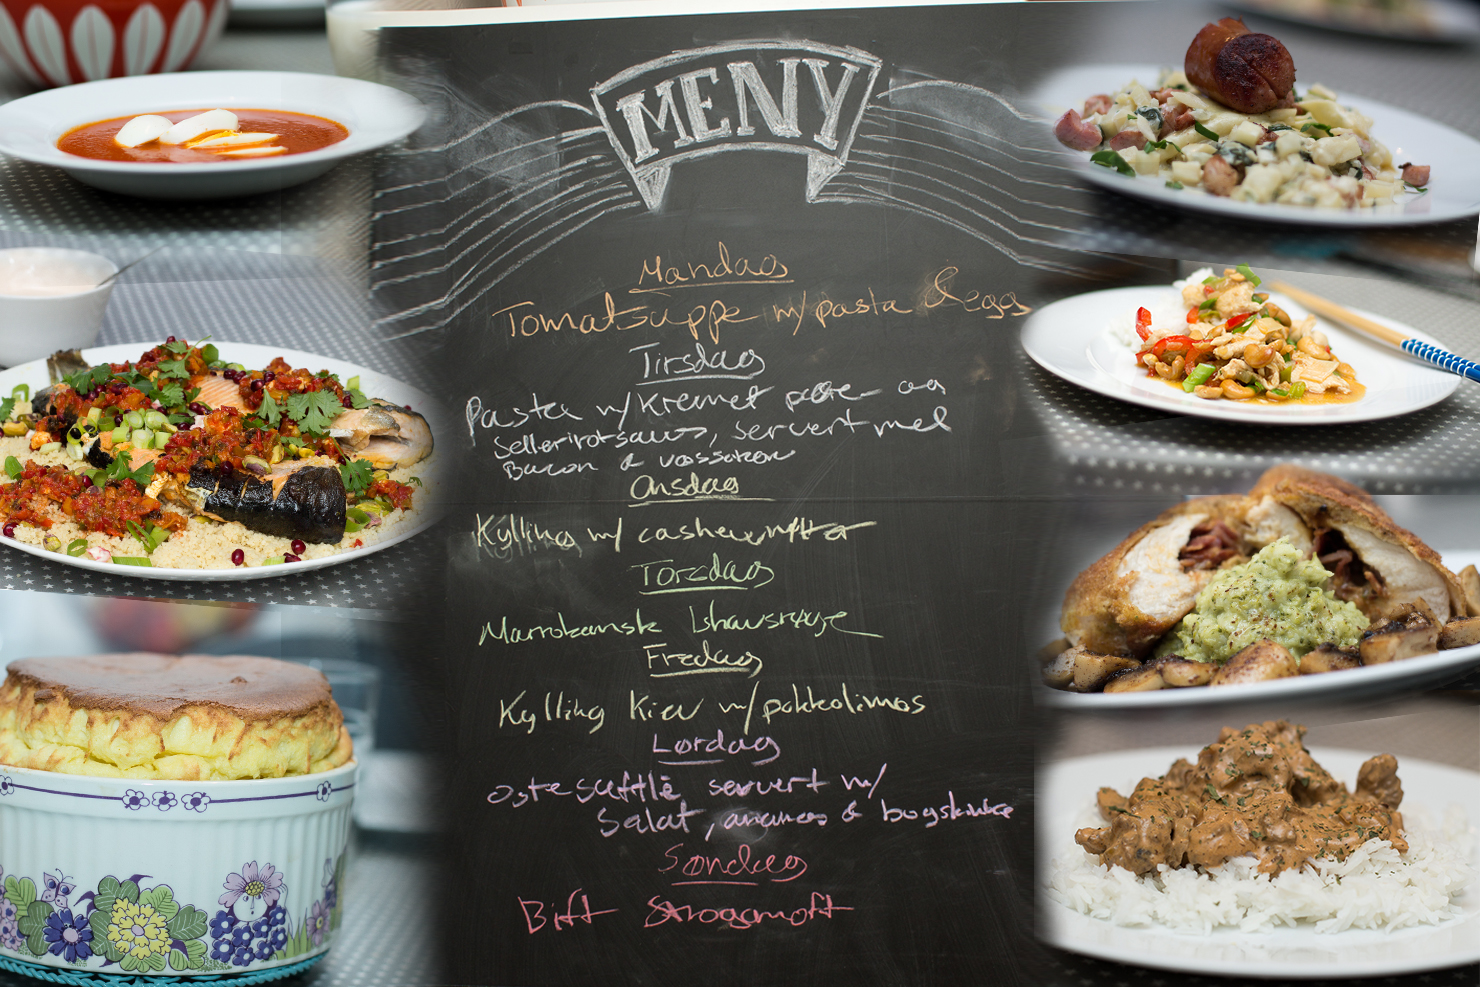 MENY
Mandag
Tomatsuppe m/pasta & egg
Tirsdag
Pasta m/Kremet og
Sellerirotsaus, servert med
Bacon & vossakorv
Onsdag
Kylling m/ cashewnøtter
Torsdag
Marrokansk
Fredag
Kylling Kiev m/pokkolimos
Lørdag
Ostesufflè servert m/
Salat, ananas & bogskinke
Søndag
Biff Stroganoff